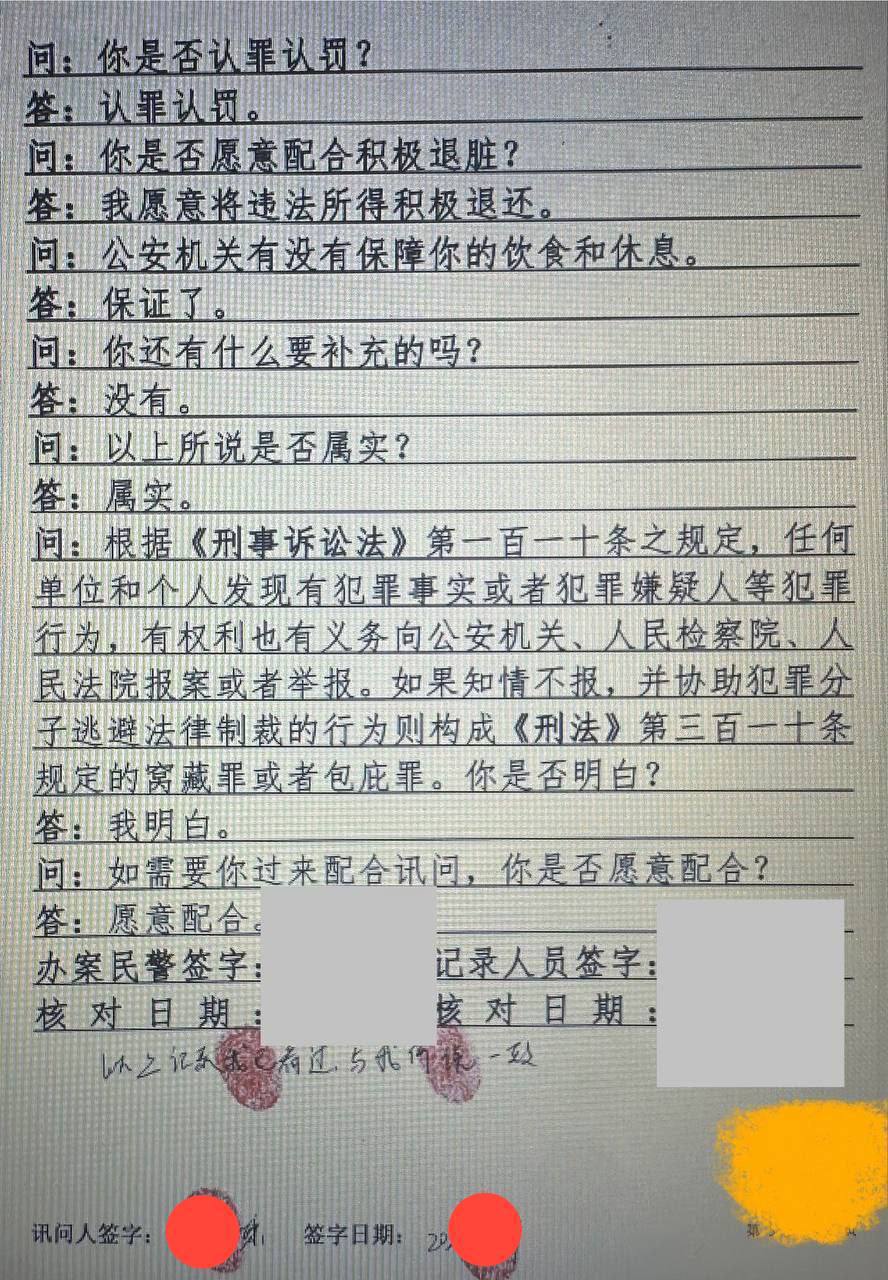 问：你是否认罪认罚？
答：认罪认罚。
问：你是否愿意配合积极退脏？
答：我愿意将违法所得积极退还。
问：公安机关有没有保障你的饮食和休息。
答：保证了。
问：你还有什么要补充的吗？
答：没有。
问：以上所说是否属实？
答：属实。
问：根据《刑事诉讼法》第一百一十条之规定，任何
单位和个人发现有犯罪事实或者犯罪嫌疑人等犯罪
行为，有权利也有义务向公安机关、人民检察院、人
民法院报案或者举报。如果知情不报，并协助犯罪分
子逃避法律制裁的行为则构成《刑法》第三百一十条
规定的窝藏罪或者包庇罪。你是否明白？
答：我明白。
问：如需要你过来配合讯问，你是否愿意配合？
答：愿意配合。
办案民警签字： 记录人员签字：
核对日期： 核对日期：
以上记录我已看过，与我所说一致
讯问人签字： 签字日期： 20
第